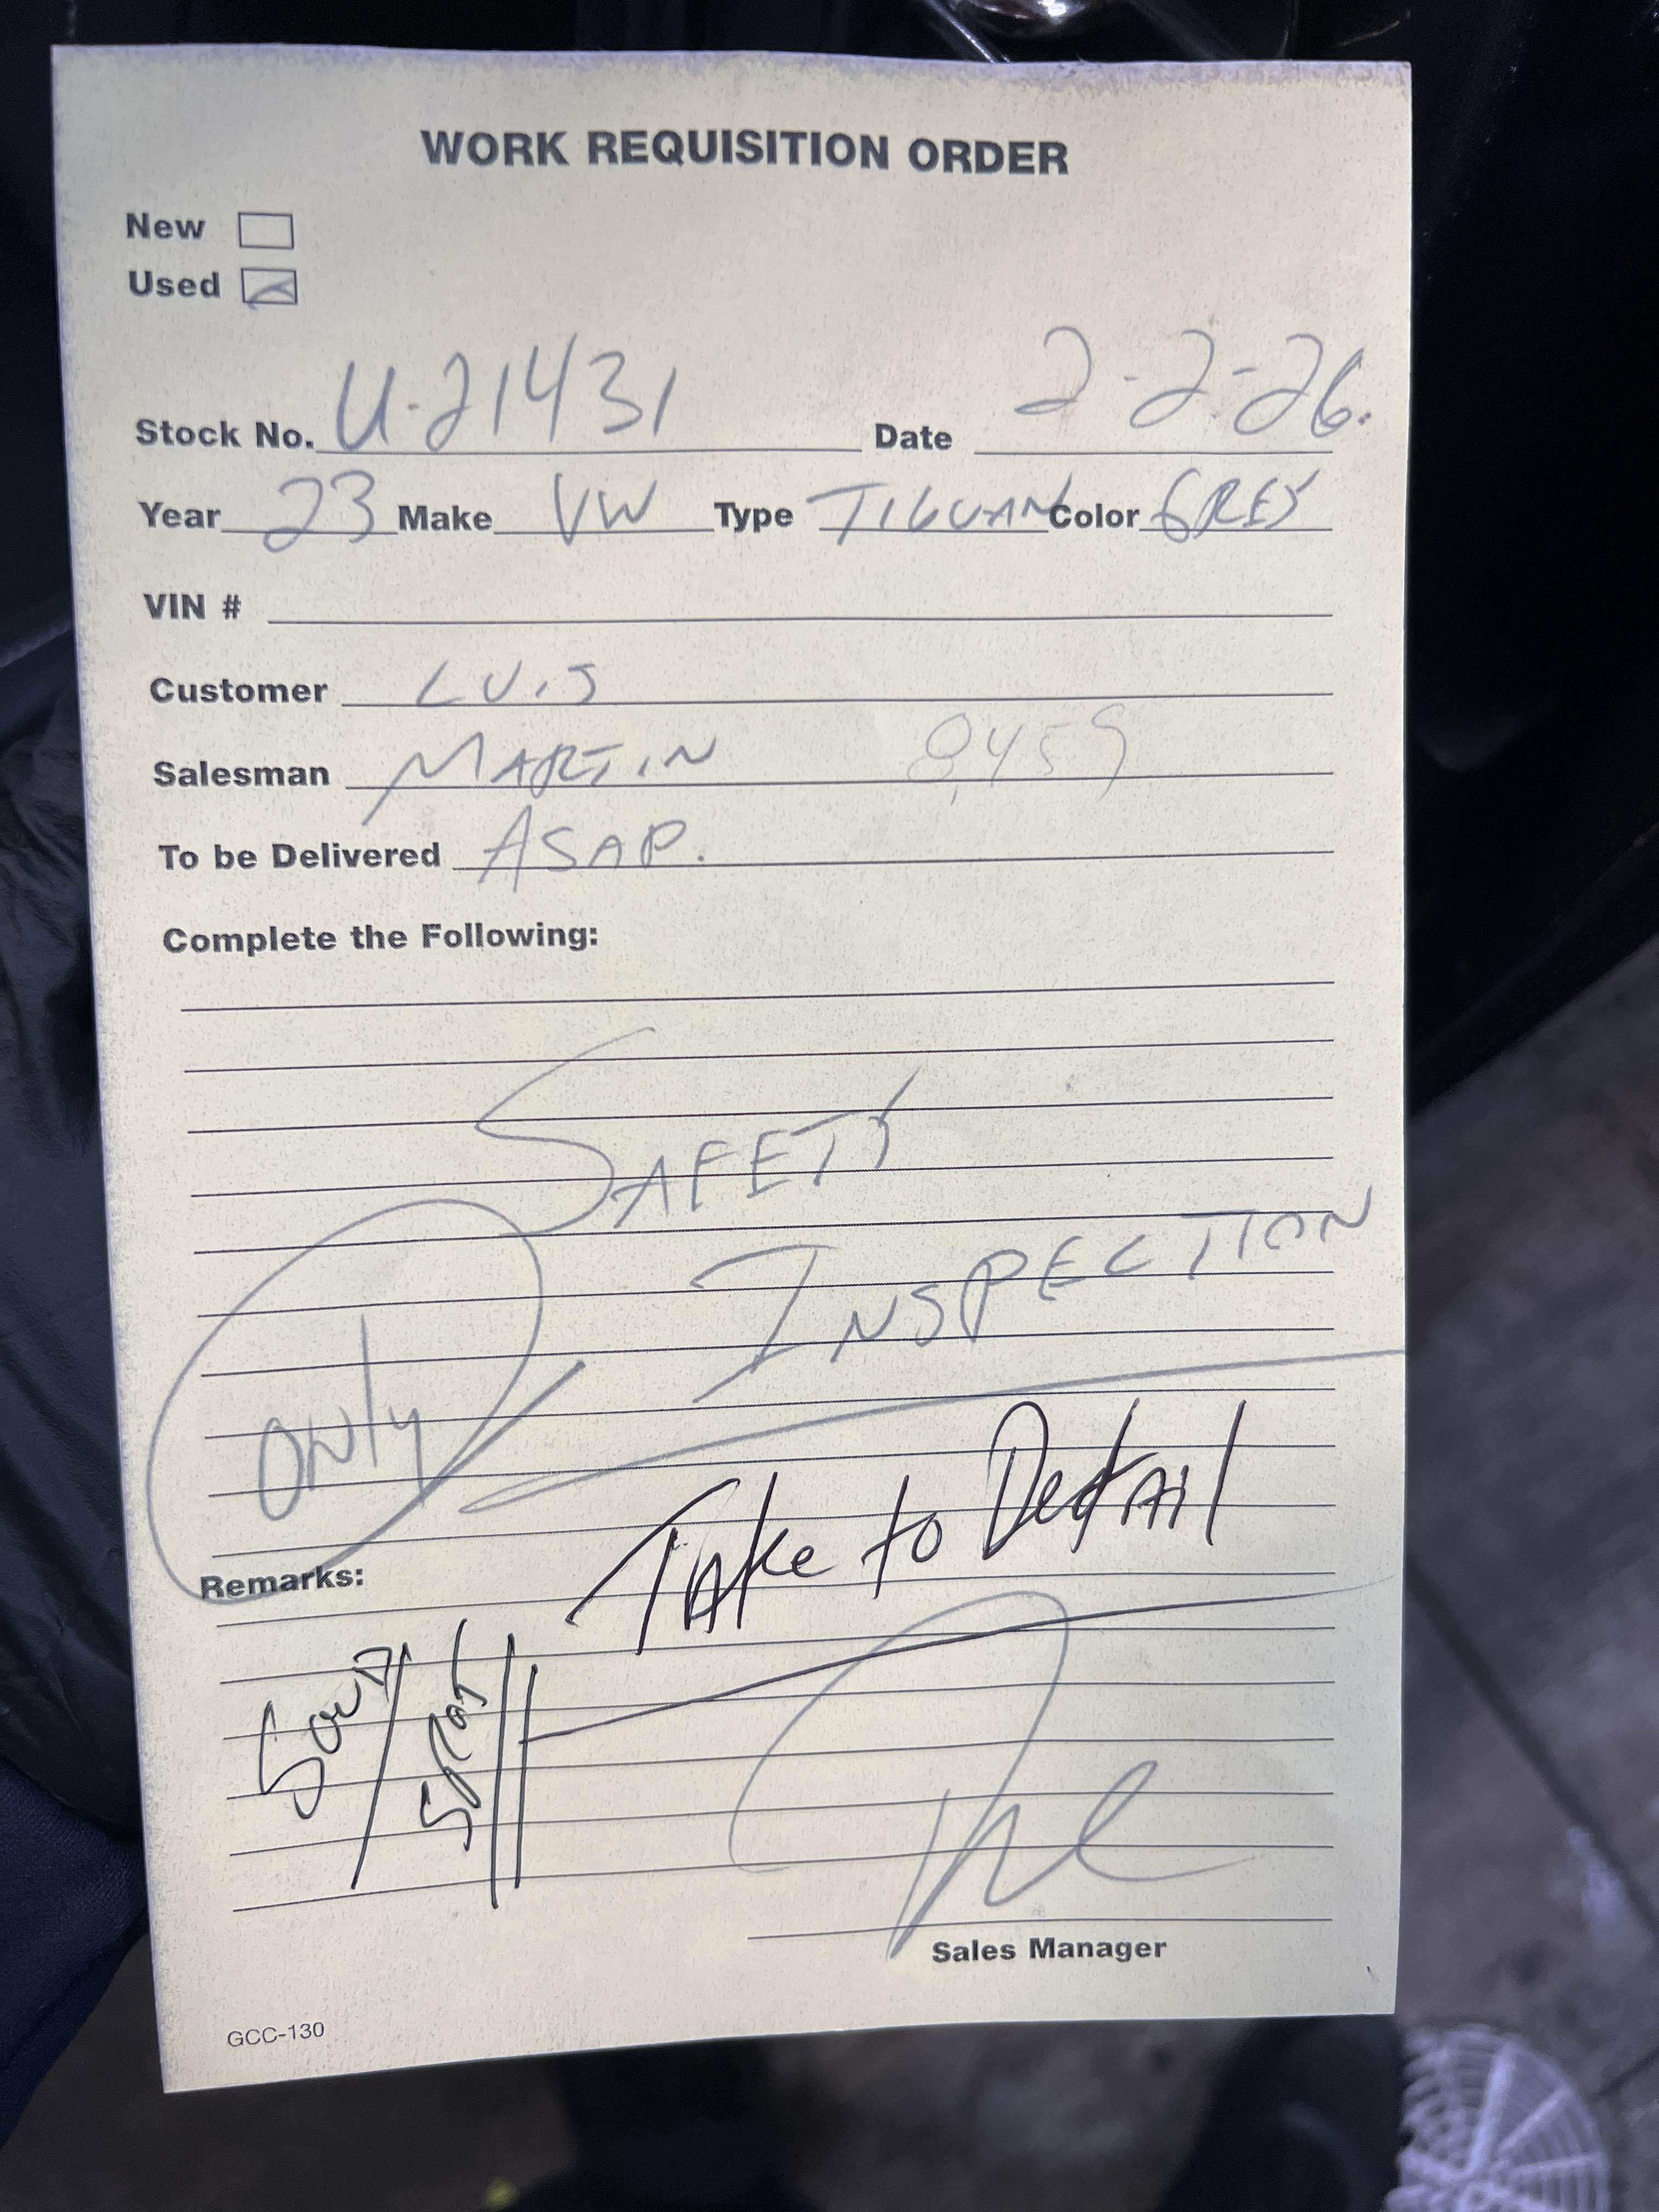 WORK REQUISITION ORDER
New
Used
Stock No. U-21431 Date 2-2-26.
Year 23 Make VW Type TIGUAN Color GREY
VIN #
Customer LUIS
Salesman MARTIN 8,459
To be Delivered ASAP.
Complete the Following:
SAFETY
INSPECTION
ONly
Take to Detail
Remarks:
SOLD
SPOT
Sales Manager
GCC-130